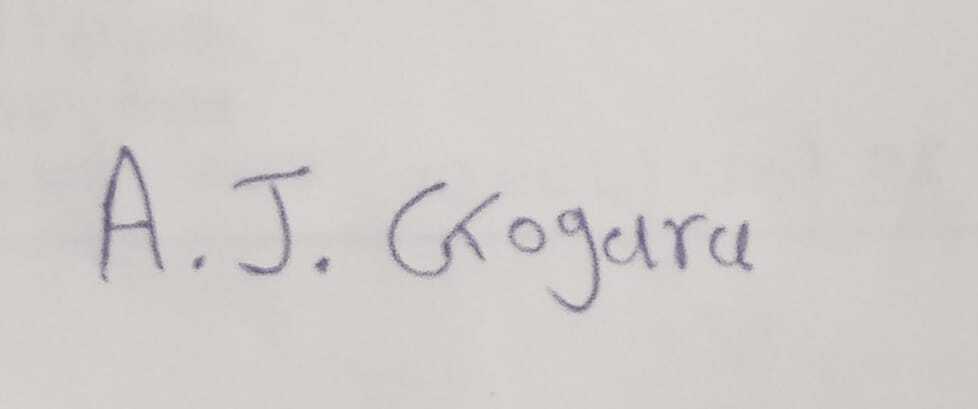 A. J. Gogara